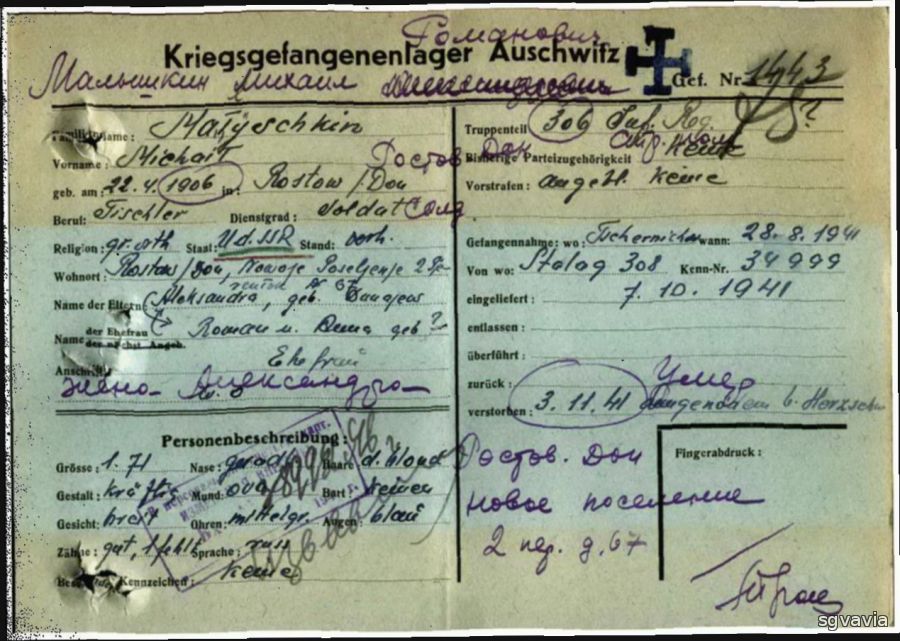 Романович
Kriegsgefangenenlager Auschwitz
Малышкин Михаил Александрович Gef. Nr. 1443
Familienname: Malyschkin
Vorname: Michail
geb. am: 22.4.1906 in: Rostow/Don
Beruf: Tischler Dienstgrad: Soldat Солд
Religion: gr. orth Staat: UdSSR Stand: verh.
Wohnort Rostow/Don, Nowoje Poseljenje 2
Name der Eltern: Aleksandra, geb.
der Ehefrau
Name der nächst. Angeb. Roman u. geb ?
Anschrift: Ehefrau
жена Александра
Personenbeschreibung:
Grösse: 1.71 Nase: gerade Haare: d. blond
Gestalt: kräftig Mund: oval Bart: keinen
Gesicht: breit Ohren: mittelgr. Augen: blau
Zähne: gut, 1 fehlt Sprache: russ
Besondere Kennzeichen: keine
Truppenteil 306 Inf. Reg
Ростов Дон
Bisherige Parteizugehörigkeit keine
Vorstrafen: angebl. keine
Gefangennahme: wo: wann: 28.8.1941
Von wo: Stalag 308 Kenn-Nr. 34999
eingeliefert: 7.10.1941
entlassen:
überführt:
zurück: Умер
verstorben: 3.11.41
Ростов. Дон
Новое поселение
2 пер. д. 67
Fingerabdruck:
sgvavia